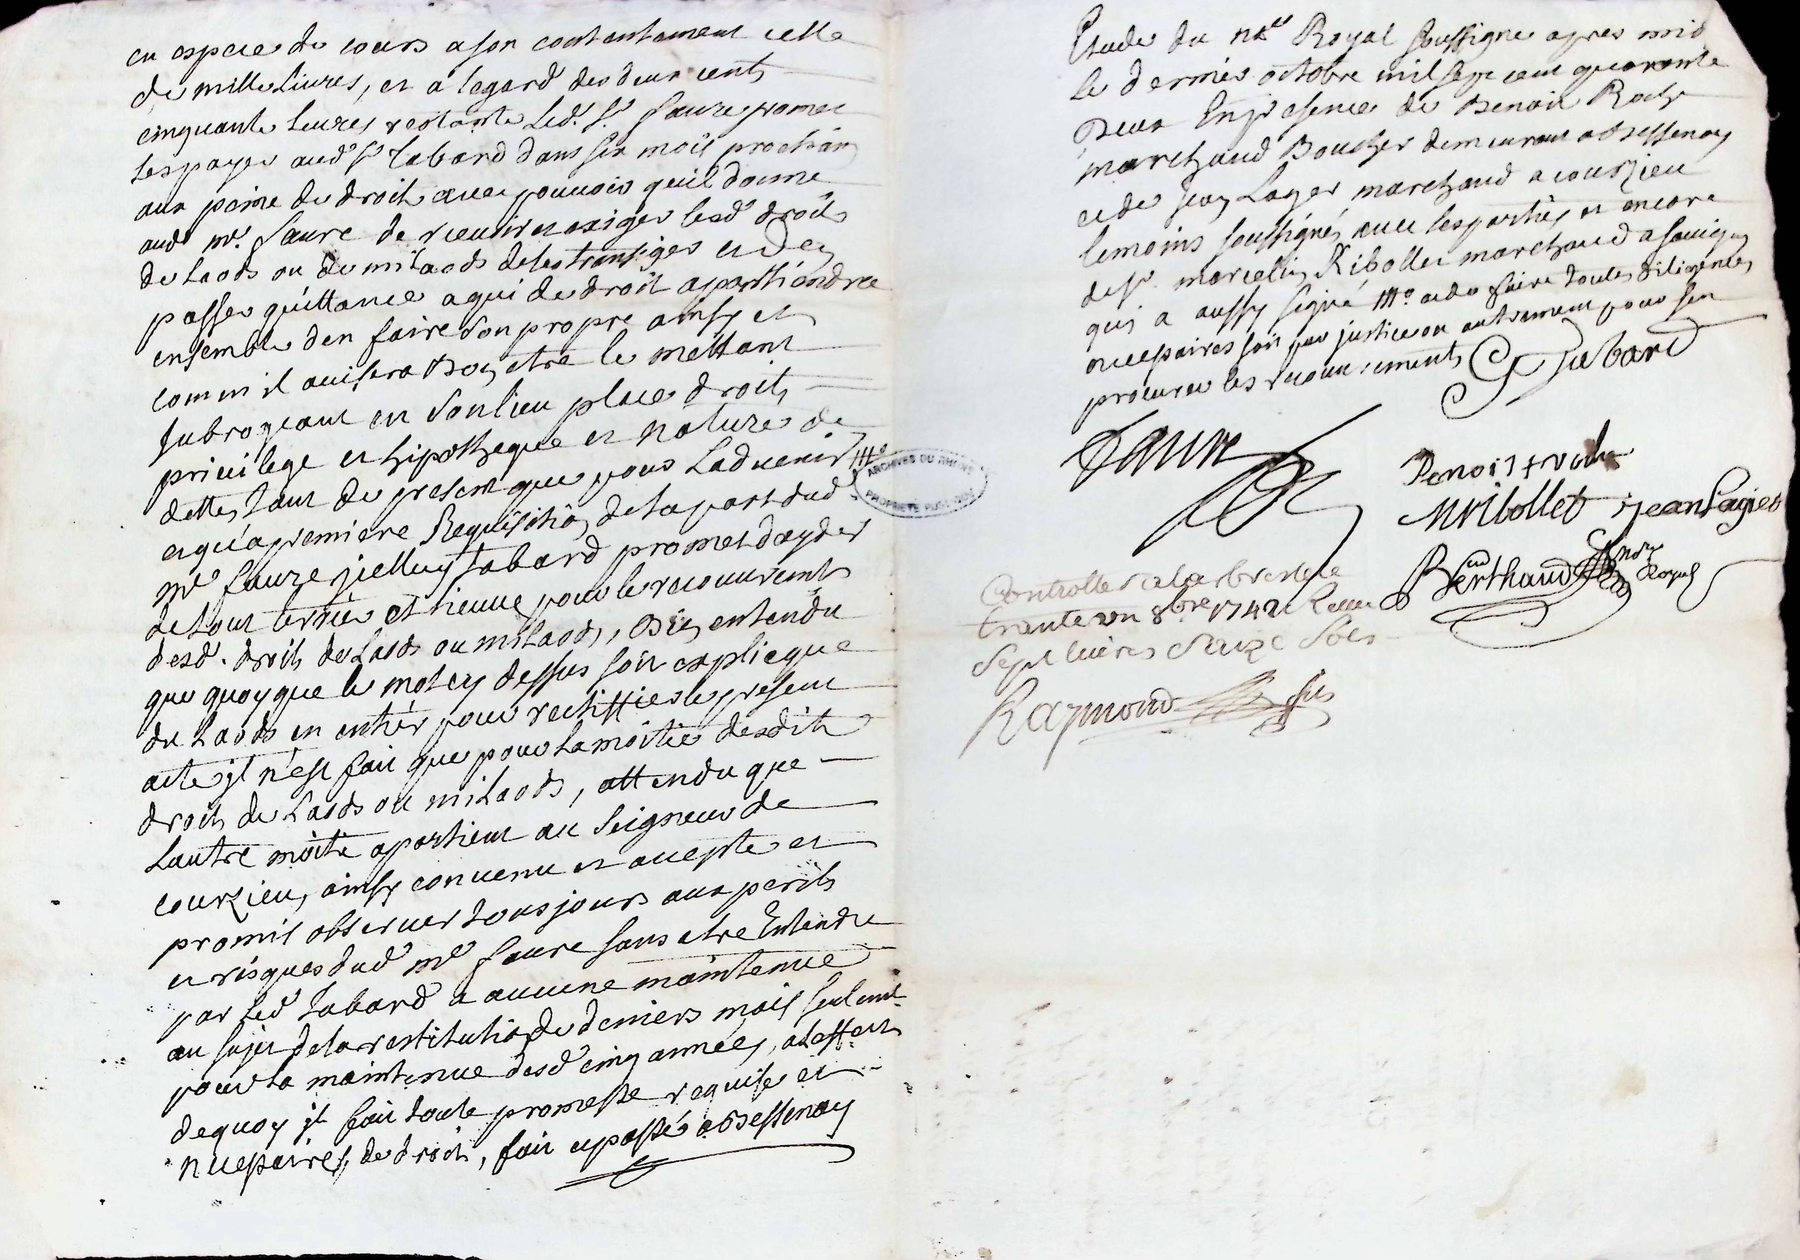 en espece de cours a son contentement celle
de mille Livres, et a legard des deux cents
cinquante livres restante Led. Sr. faure promet
les payer aud Sr tabard dans six mois prochain
aux peine de droit avec pouvoir qu'il donne
aud mr. faure de recevoir exiger lesd droits
de Laods ou de milaods de les transiger et d'en
passer quittance a qui de droit apartiendra
ensemble den faire son propre ainsy et
comm il avisera bon etre le mettant
subrogeant en son lieu place droits
privilege et hipotheque et nature de
dettes tant de present que pour Ladvenir ///o
et qu'a premiere Requisition de la part dud
mr faure jcelluy tabard promet dayder
de tout terrier et lieuve pour le recouvremt
desd. droits de Laods ou milaods, bien entendu
que quoy que le mot cy dessus soit explicque
du Laods en entier pour rectiffier le present
acte jl n'est fait que pour la moitie desdits
droits de Laods ou milaods, attendu que
Lautre moitie apartient au Seigneur de
courzieu, ainsy convenu et accepte et
promit observer tousjours aux perils
et risques dud mr faure sans etre Entendu
par Led tabard a aucune maintenue
au sujet de la restitution de deniers mais seulemt
pour la maintenue desd cinq années, a leffect
de quoy jl fait toute promesse requise et
necessaires de droit, fait et passé a Bessenay
ARCHIVES DU RHONE
PROPRIETE PUBLIQUE
Etude du nre Royal soussigne apres midi
le dernier octobre mil sept cent quarante
Deux En presence de Benoit Roche
marchand Boucher demeurant a Bessenay
et de jean Lager marchand a courzieu
temoins soussignés avec les parties et encore
de Sr. marcelin Ribollet marchand a savigny
qui a aussy signé ///o et de faire toutes diligences
necessaires soit par justice ou autrement pour sen
procurer les recouvrements G Tabard
faure
Benoit roche
MRibollet jean Lagier
Berthaud nore Royal
Controlle a larbresle
trente un 8bre 1742 Receu
sept livres seize sols
Raymond fils